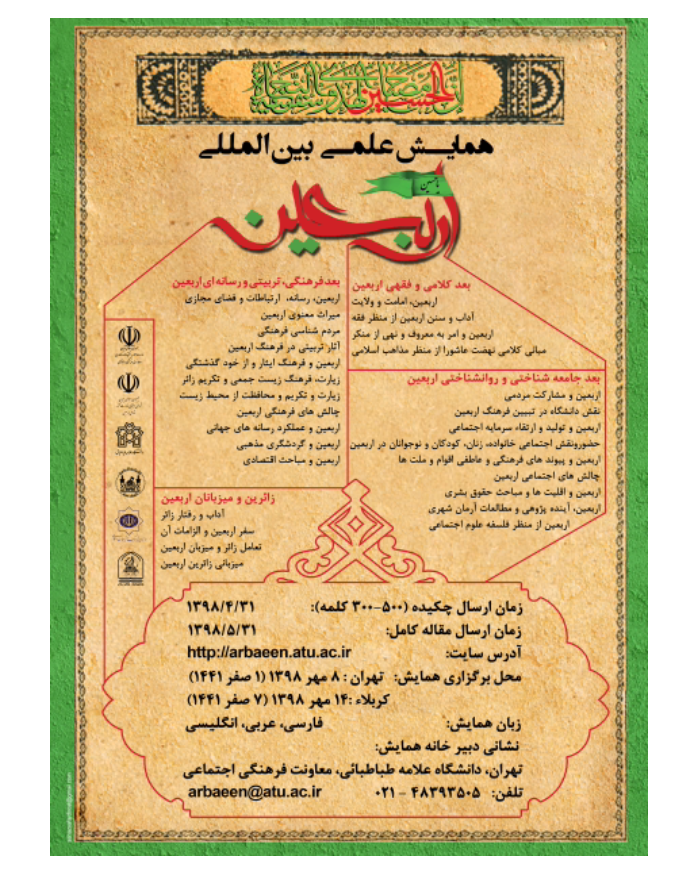 إن الحسین مصباح الهدی و سفینة النجاة
همایش علمی بین المللی
یا حسین
اربعین
بعد کلامی و فقهی اربعین
اربعین، امامت و ولایت
آداب و سنن اربعین از منظر فقه
اربعین و امر به معروف و نهی از منکر
مبانی کلامی نهضت عاشورا از منظر مذاهب اسلامی
بعد جامعه شناختی و روانشناختی اربعین
اربعین و مشارکت مردمی
نقش دانشگاه در تبیین فرهنگ اربعین
اربعین و تولید و ارتقاء سرمایه اجتماعی
حضورونقش اجتماعی خانواده، زنان، کودکان و نوجوانان در اربعین
اربعین و پیوند های فرهنگی و عاطفی اقوام و ملت ها
چالش های اجتماعی اربعین
اربعین و اقلیت ها و مباحث حقوق بشری
اربعین، آینده پژوهی و مطالعات آرمان شهری
اربعین از منظر فلسفه علوم اجتماعی
بعدفرهنگی، تربیتی و رسانه ای اربعین
اربعین، رسانه، ارتباطات و فضای مجازی
میراث معنوی اربعین
مردم شناسی فرهنگی
آثار تربیتی در فرهنگ اربعین
اربعین و فرهنگ ایثار و از خود گذشتگی
زیارت، فرهنگ زیست جمعی و تکریم زائر
زیارت و تکریم و محافظت از محیط زیست
چالش های فرهنگی اربعین
اربعین و عملکرد رسانه های جهانی
اربعین و گردشگری مذهبی
اربعین و مباحث اقتصادی
زائرین و میزبانان اربعین
آداب و رفتار زائر
سفر اربعین و الزامات آن
تعامل زائر و میزبان اربعین
میزبانی زائرین اربعین
زمان ارسال چکیده (۵۰۰-۳۰۰ کلمه): ۱۳۹۸/۴/۳۱
زمان ارسال مقاله کامل: ۱۳۹۸/۵/۳۱
آدرس سایت: http://arbaeen.atu.ac.ir
محل برگزاری همایش: تهران : ۸ مهر ۱۳۹۸ (۱ صفر ۱۴۴۱)
کربلاء :۱۴ مهر ۱۳۹۸ (۷ صفر ۱۴۴۱)
زبان همایش: فارسی، عربی، انگلیسی
نشانی دبیر خانه همایش:
تهران، دانشگاه علامه طباطبائی، معاونت فرهنگی اجتماعی
تلفن: ۴۸۳۹۳۵۰۵ - ۰۲۱ arbaeen@atu.ac.ir